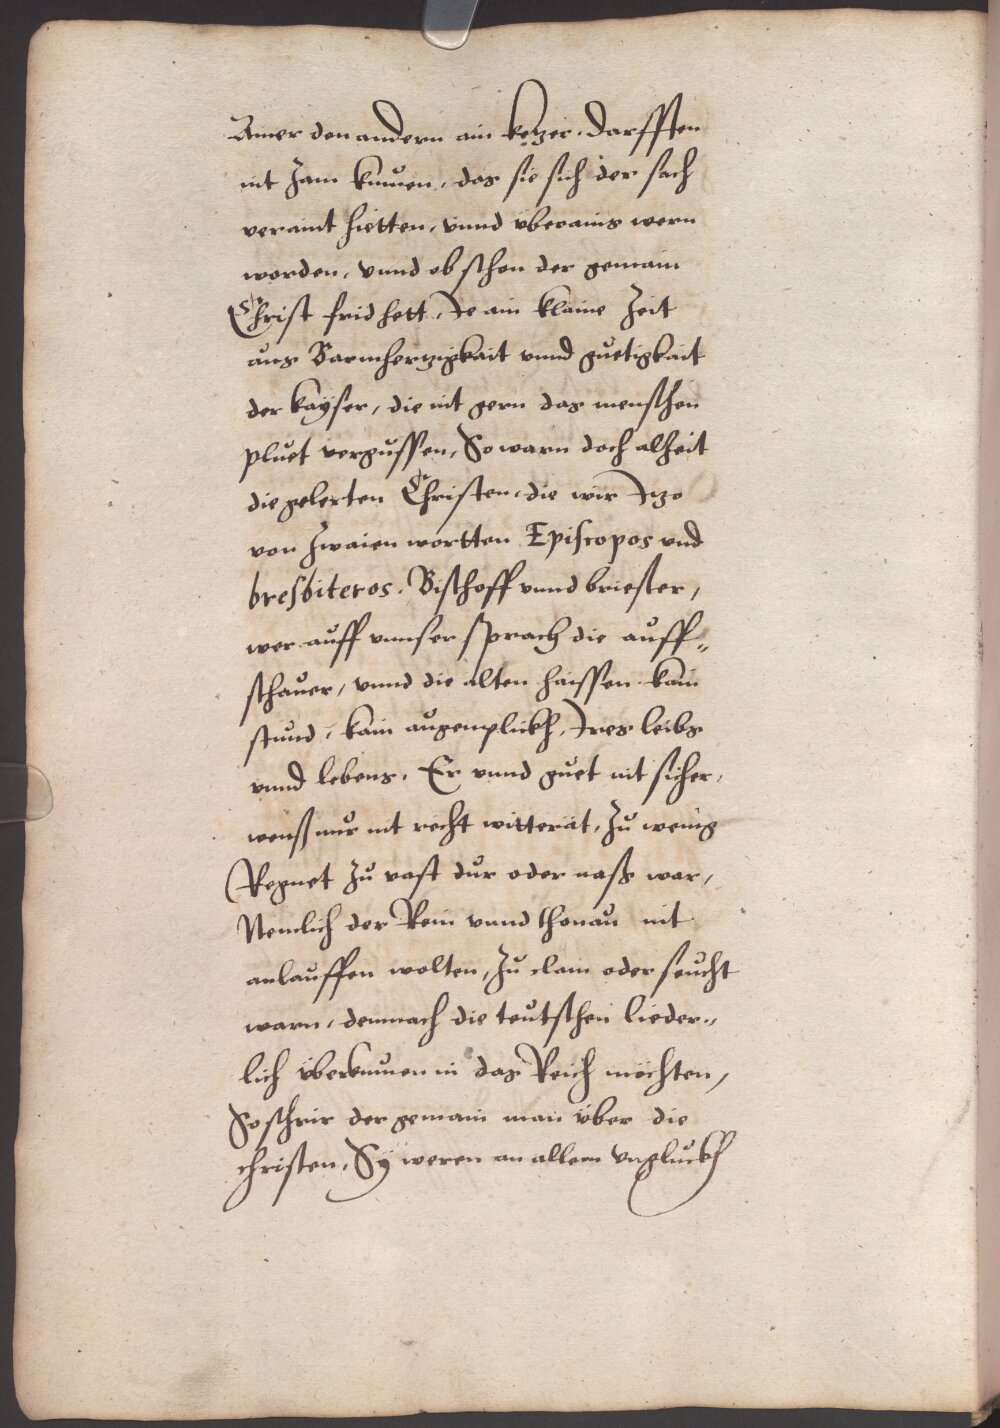 Ainer den andern ain ketzer. Darfften
nit zam kumen, das sie sich der sach
veraint hietten, vnnd vberains wern
worden, vnnd ob schon der gemain
Christ frid hett, Je ain klaine Zeit
aus Barmhertzigkait vnnd guetigkait
der kayser, die nit gern das menschen
pluet vergussen, So warn doch alzeit
die gelerten Christen, die wir Jtzo
von zwaien wortten Episcopos vnd
bresbiteros. Bischoff vnnd briester,
wer auff vnnser sprach die auff„
schauer, vnnd die alten haissen kain
stund, kain augenplickh, Jres leibs
vnnd lebens. Er vnnd guet nit sicher,
wenß nur nit recht witterat, Zu wenig
Regnet zu vast dur oder naß war,
Nemlich der Rein vnnd thonau nit
anlauffen wolten, Zu clain oder seucht
warn, demnach die teutschen lieder„
lich vberkumen in das Reich möchten,
So schrir der gemain man vber die
christen, Sy weren an allem vngluckh